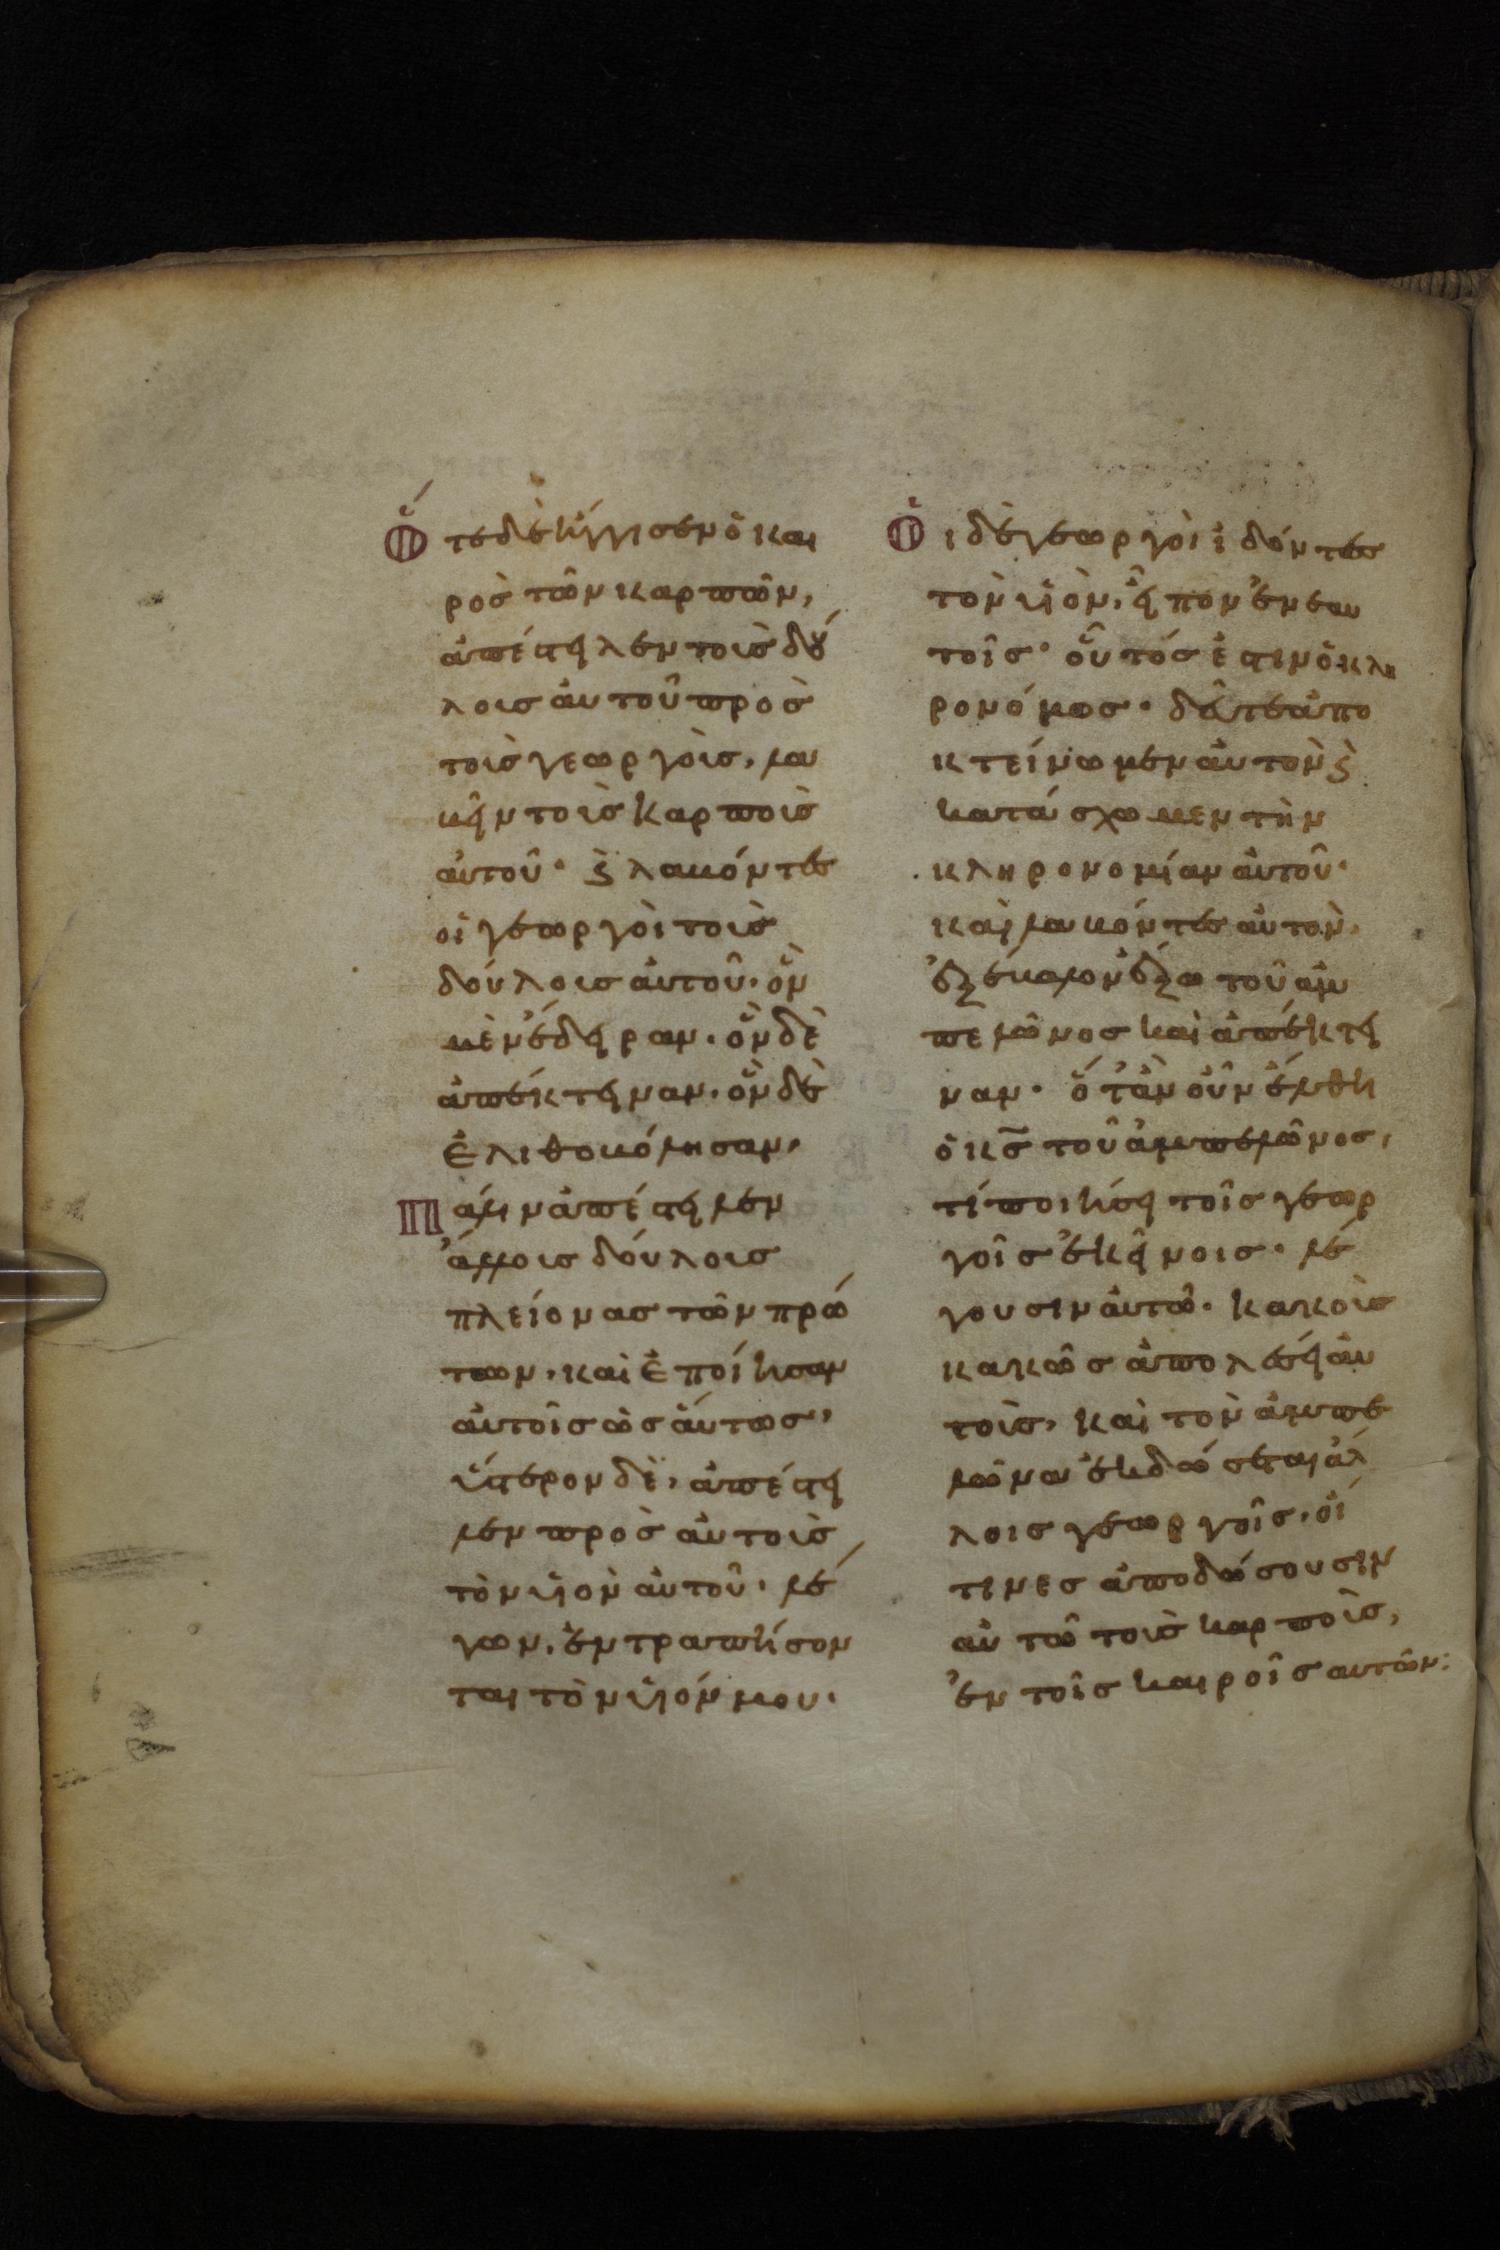 Ὅτε δὲ ἤγγισεν ὁ και
ρὸς τῶν καρπῶν,
ἀπέστειλεν τοὺς δού
λους αὐτοῦ πρὸς
τοὺς γεωργοὺς, λα
βεῖν τοὺς καρποὺς
αὐτοῦ· ϗ λαβόντες
οἱ γεωργοὶ τοὺς
δούλους αὐτοῦ· ὃν
μὲν ἔδειραν· ὃν δὲ
ἀπέκτειναν· ὃν δὲ
ἐλιθοβόλησαν,
Πάλιν ἀπέστειλεν
ἄλλους δούλους
πλείονας τῶν πρώ
των· καὶ ἐποίησαν
αὐτοῖς ὡσαύτως,
ὕστερον δὲ, ἀπέστει
λεν πρὸς αὐτοὺς
τὸν υἱὸν αὐτοῦ· λέ
γων, ἐντραπήσον
ται τὸν υἱόν μου·
Οἱ δὲ γεωργοὶ ἰδόντες
τὸν υἱὸν, εἶπον ἐν ἑαυ
τοῖς· οὗτός ἐστιν ὁ κλη
ρονόμος· δεῦτε ἀπο
κτείνωμεν αὐτὸν ϗ
κατάσχωμεν τὴν
κληρονομίαν αὐτοῦ·
καὶ λαβόντες αὐτὸν,
ἐξέβαλον ἔξω τοῦ ἀμ
πελῶνος καὶ ἀπέκτει
ναν· ὅταν οὖν ἔλθη
ὁ κς τοῦ ἀμπελῶνος,
τί ποιήσει τοῖς γεωρ
γοῖς ἐκείνοις· λέ
γουσιν αὐτῶ· κακοὺς
κακῶς ἀπολέσει αὐ
τοὺς, καὶ τὸν ἀμπε
λῶνα ἐκδώσεται ἄλ
λοις γεωργοῖς, οἵ
τινες ἀποδώσουσιν
αὐτῶ τοὺς καρποὺς,
ἐν τοῖς καιροῖς αυτῶν: